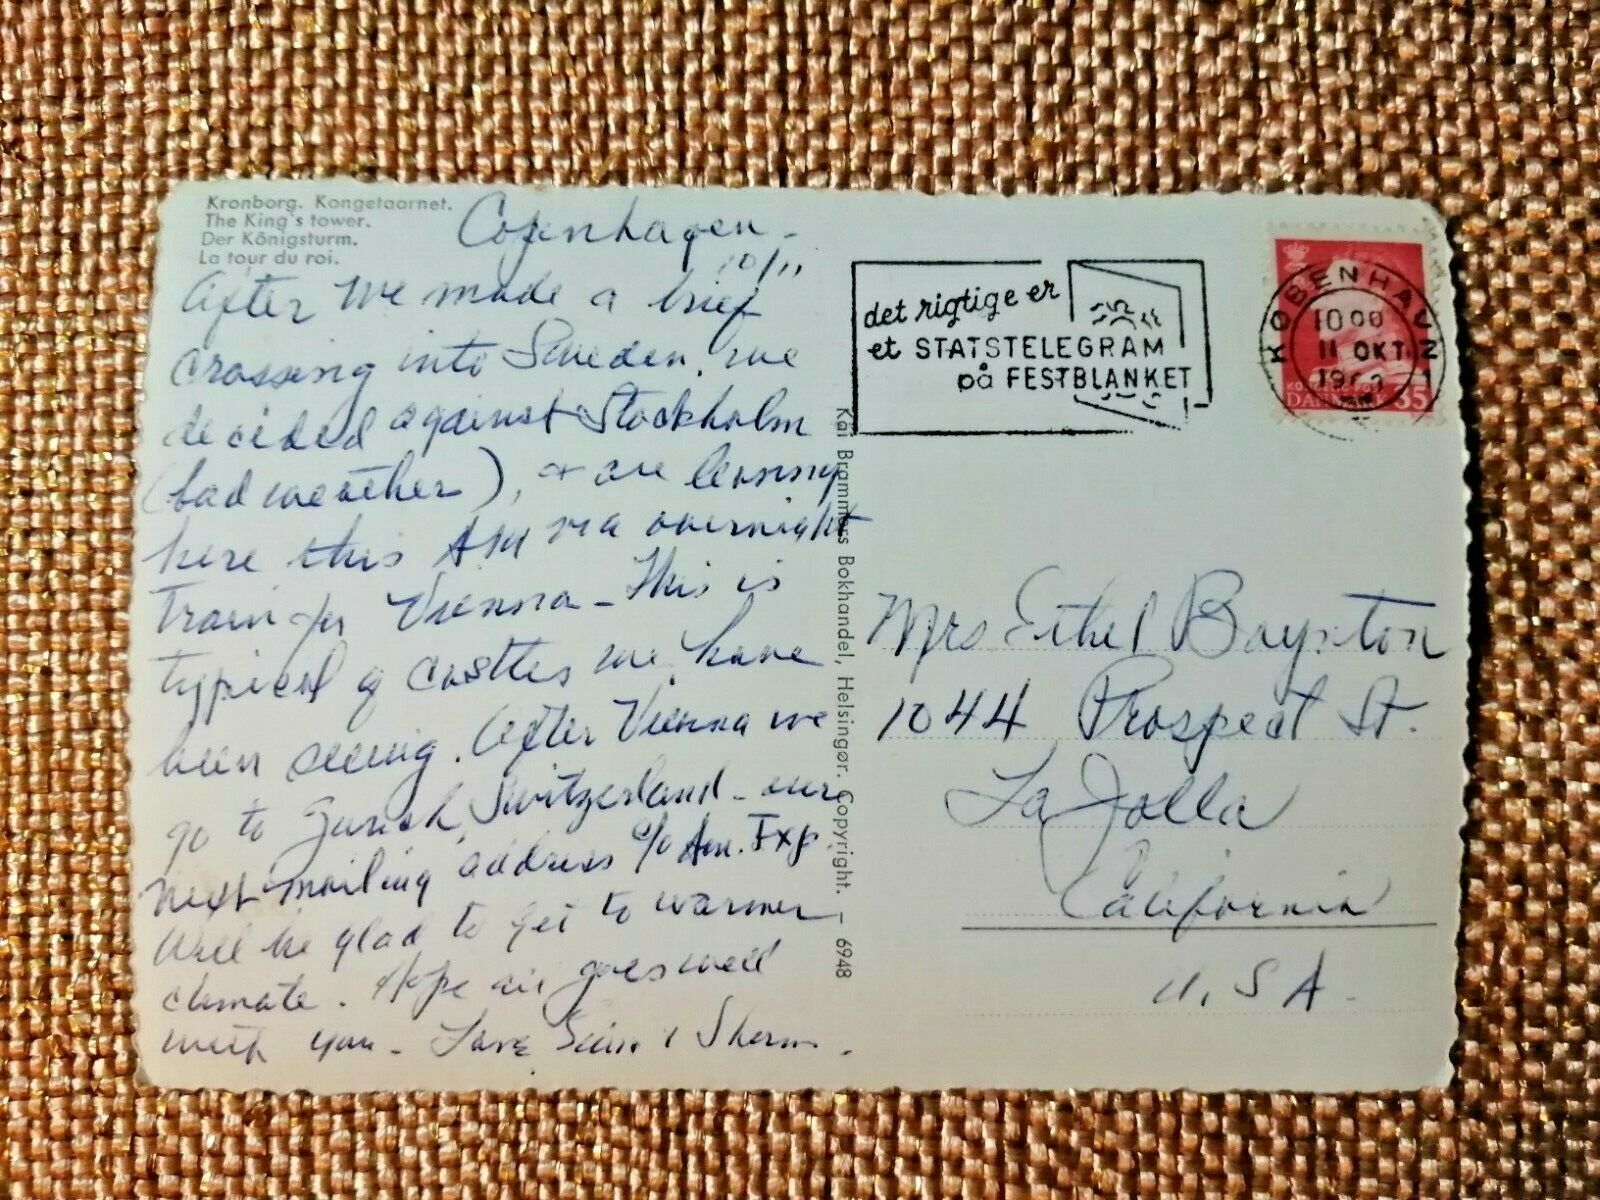 Kronborg. Kongetaarnet.
The King's tower.
Der Königsturm.
La tour du roi.
Copenhagen -
10/11
After we made a brief
crossing into Sweden, we
decided against Stockholm
(bad weather), + are leaving
here this AM via overnight
Train for Vienna - This is
typical of castles we have
been seeing. After Vienna we
go to Zurich, Switzerland - our
next mailing address c/o Am. Exp
Will be glad to get to warmer
climate. Hope all goes well
with you - Love & Sherm.
Kai Brammers Bokhandel, Helsingør. Copyright. — 6948
det rigtige er
et STATSTELEGRAM
på FESTBLANKET
KØBENHAVN
1000
11 OKT.
1
DANMARK 35
Mrs Ethel Boynton
1044 Prospect St.
La Jolla
California
U.S.A.